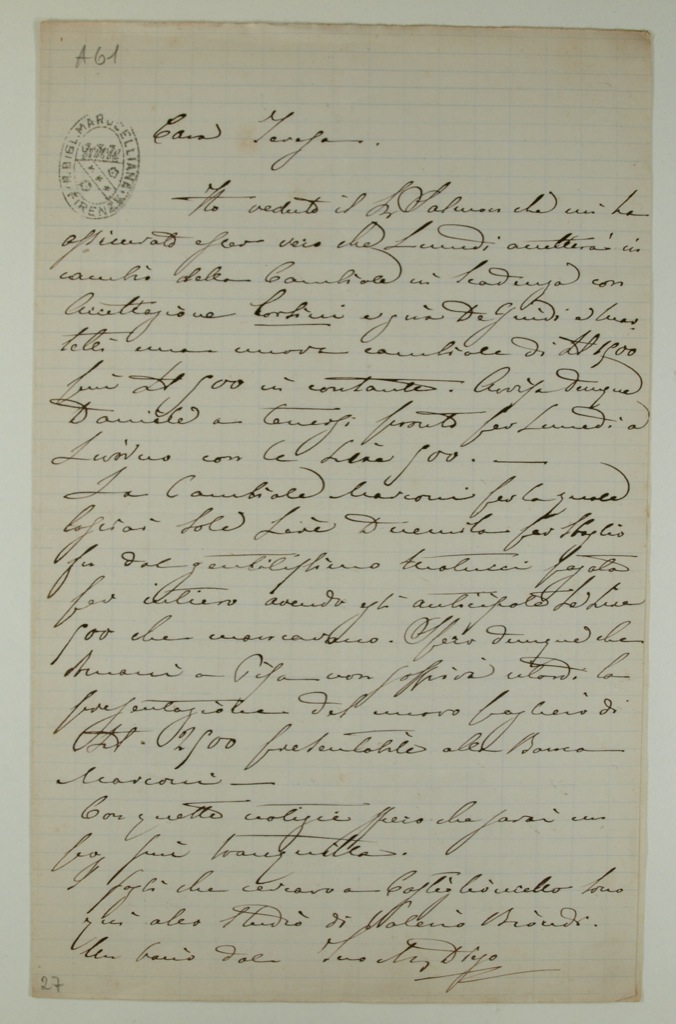 A61
R. BIBL. MARUCELLIANA FIRENZE
Cara Teresa.
Ho veduto il Sig Salmon che mi ha
assicurato esser vero che Lunedì accetterà in
cambio della Cambiale in Scadenza con
Accettazione Corsini e gira De Gindi e Mar
telli una nuova cambiale di £t 1500
più £t 500 in contante. Avvisa dunque
Daniele a tenersi pronto per Lunedì a
Livorno con le Lire 500. —
La Cambiale Marconi per la quale
lasciai Sole Lire Duemila per sbaglio
fu dal gentilissimo Matucci pagata
per intiero avendo egli anticipato Le Lire
500 che mancavano. Spero dunque che
domani a Pisa non soffrirà ritardi la
presentazione del nuovo pagherò di
£t. 2500 presentabile alla Banca
Marconi —
Con queste notizie spero che sarai un
po più tranquilla.
I fogli che cercavo a Castiglioncello sono
qui allo Studio di Valerio Biondi.
Un bacio dal Tuo Diego
27